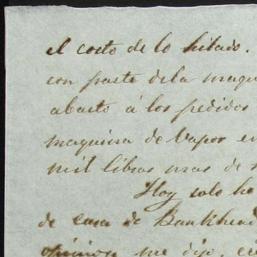 el costo de lo hilado.
con parte dela maqui
abasto á los pedidos
maquina de Vapor en
mil libras mas de
Hoy solo he
de casa de Bankhead
opinion me dijo,